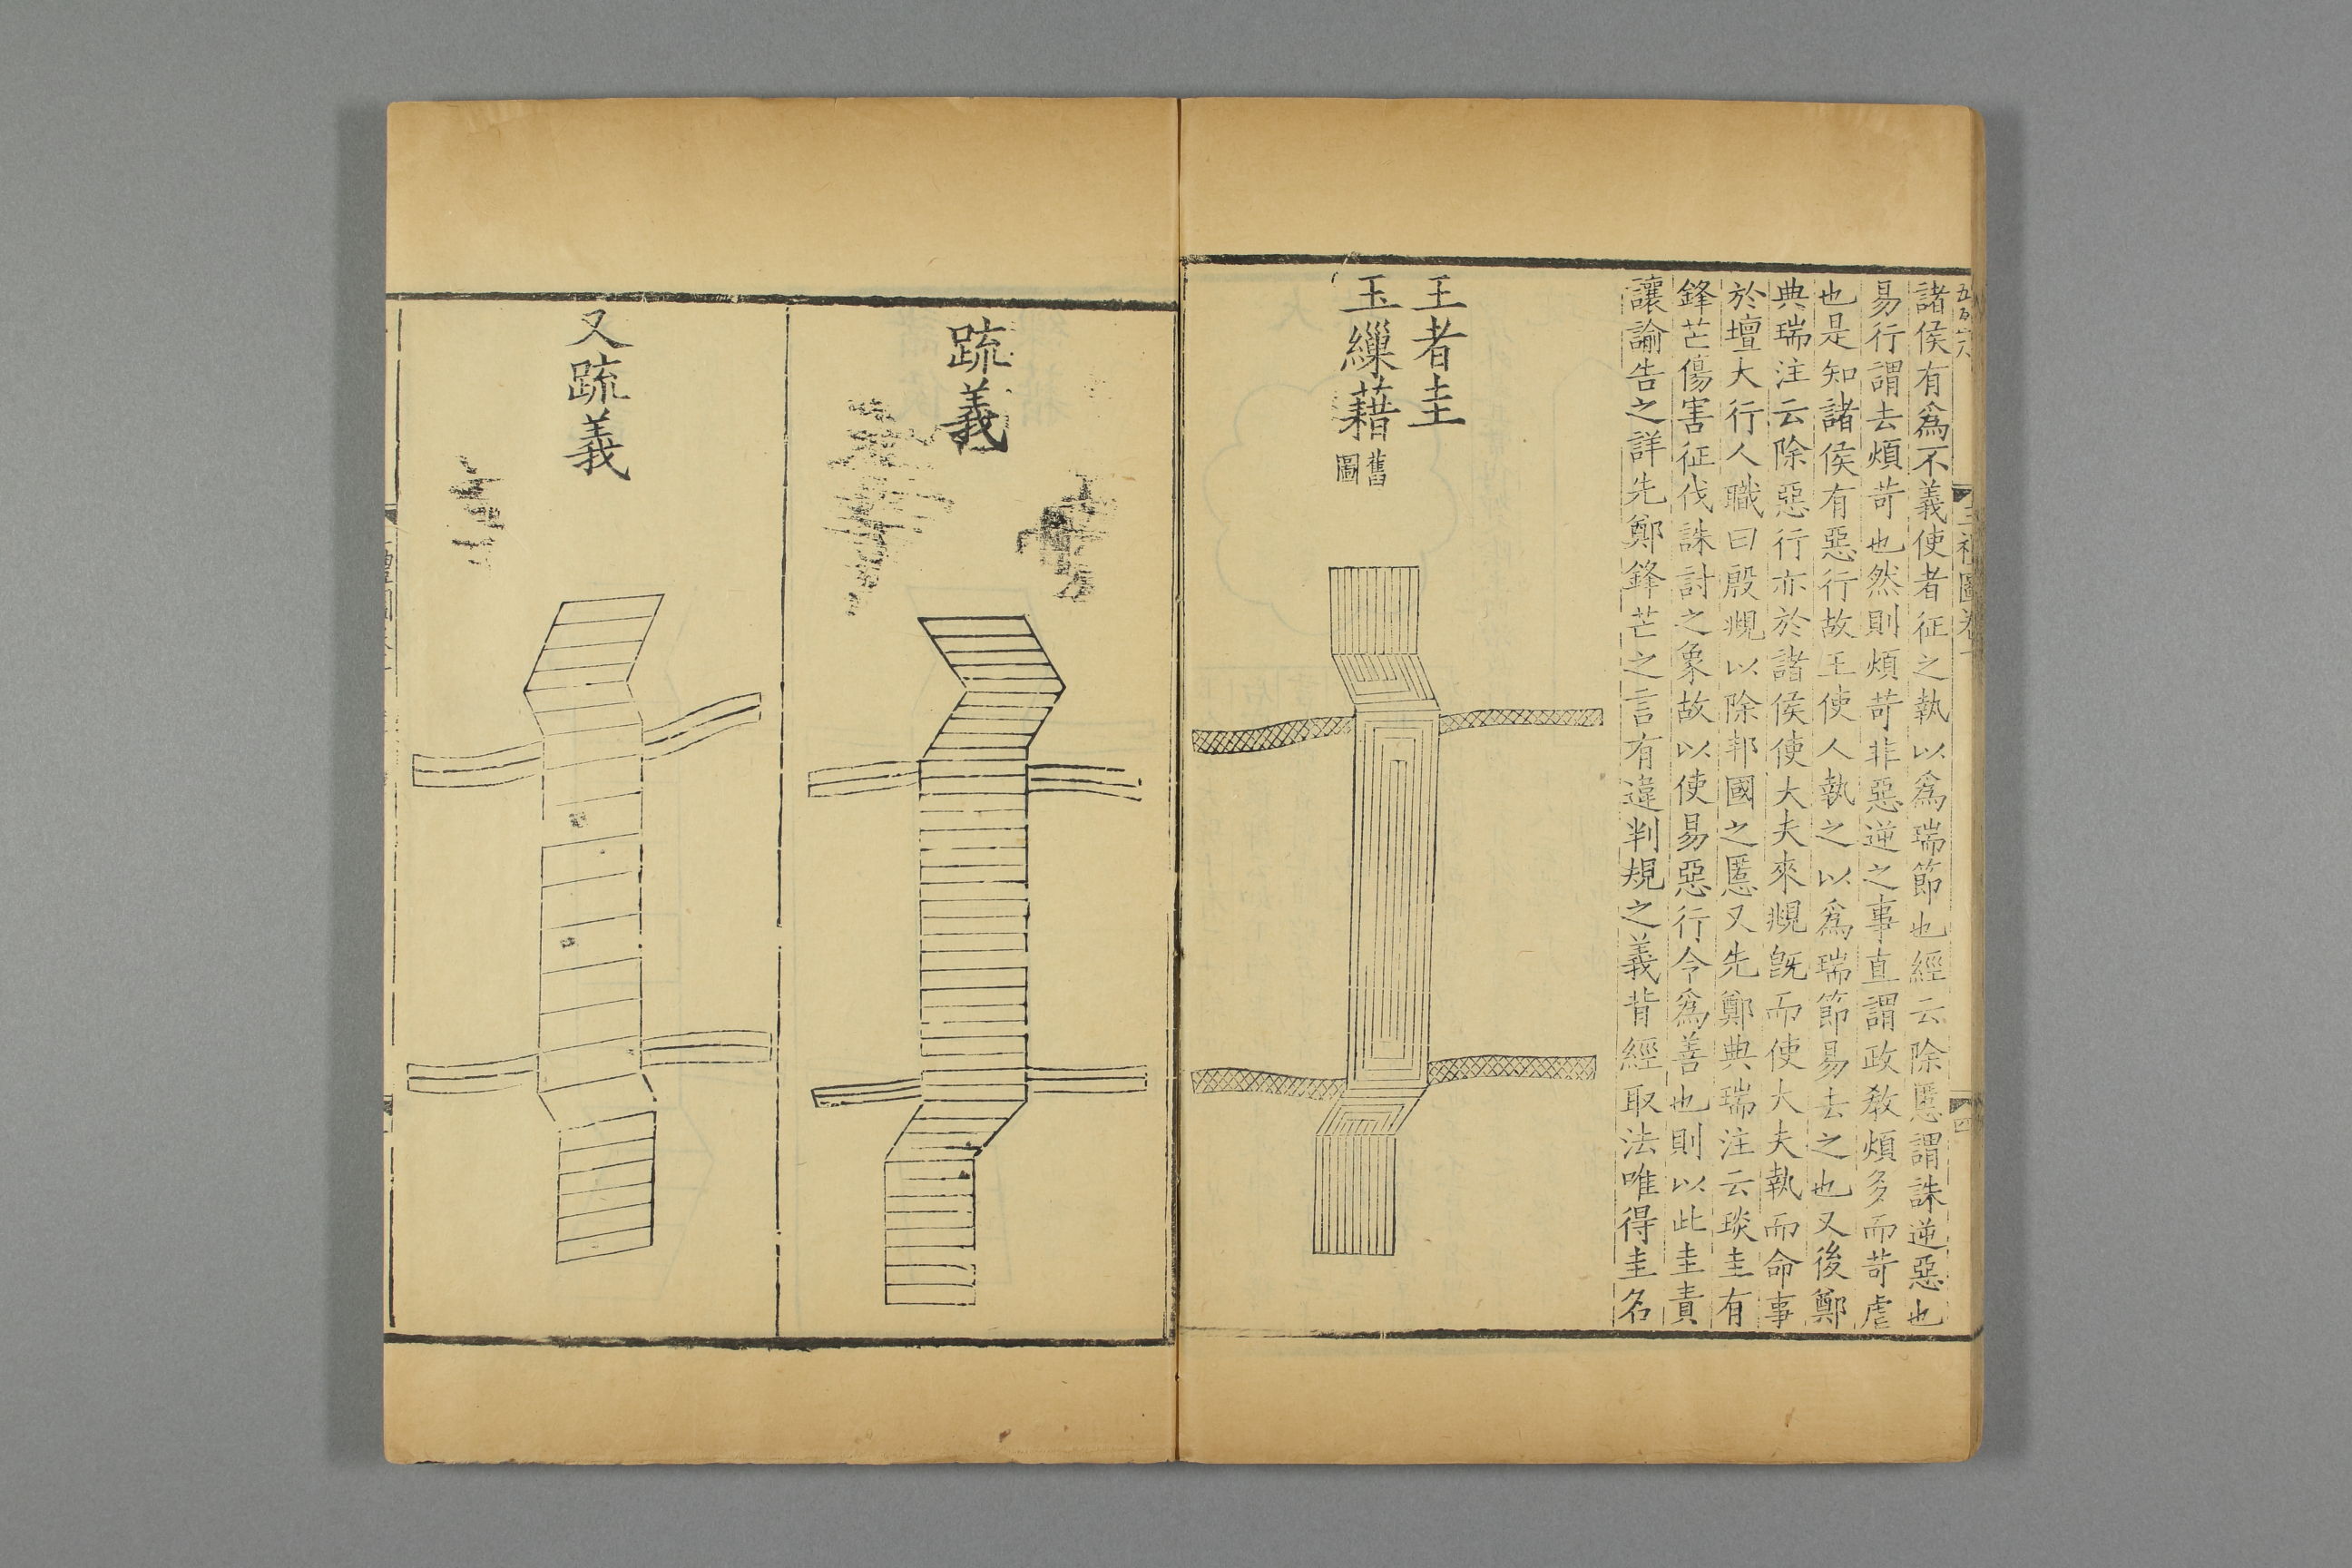 諸侯有爲不義使者征之執以爲瑞節也經云除慝謂誅逆惡也
易行謂去煩苛也然則煩苛非惡逆之事直謂政教煩多而苛虐
也是知諸侯有惡行故王使人執之以爲瑞節易去之也又後鄭
典瑞注云除惡行亦於諸侯使大夫來覜旣而使大夫執而命事
於壇大行人職曰殷覜以除邦國之慝又先鄭典瑞注云琰圭有
鋒芒傷害征伐誅討之象故以使易惡行令爲善也則以此圭責
讓諭告之詳先鄭鋒芒之言有違判規之義背經取法唯得圭名
王者圭
玉繅藉舊圖
疏義
又疏義